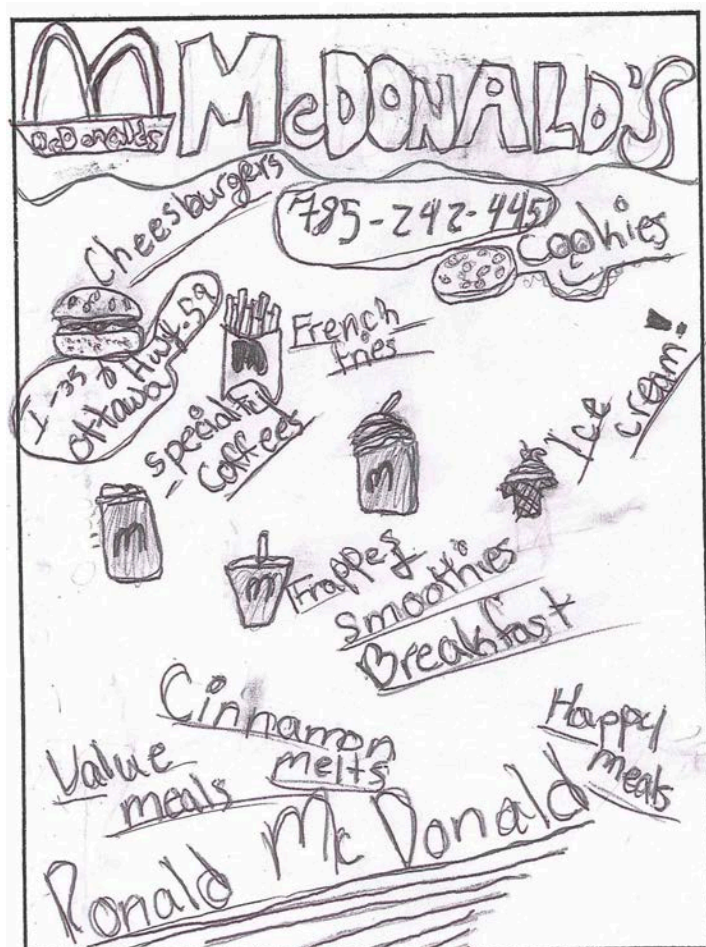 McDonalds
McDONALD'S
Cheesburgers
785-242-4451
Cookies
I-35 & Hwy. 59
Ottawa
French
fries
Specialty
Coffees
Ice
cream
m
m
m
m
Frappes
Smoothies
Breakfast
Cinnamon
melts
Happy
meals
Value
meals
Ronald McDonald